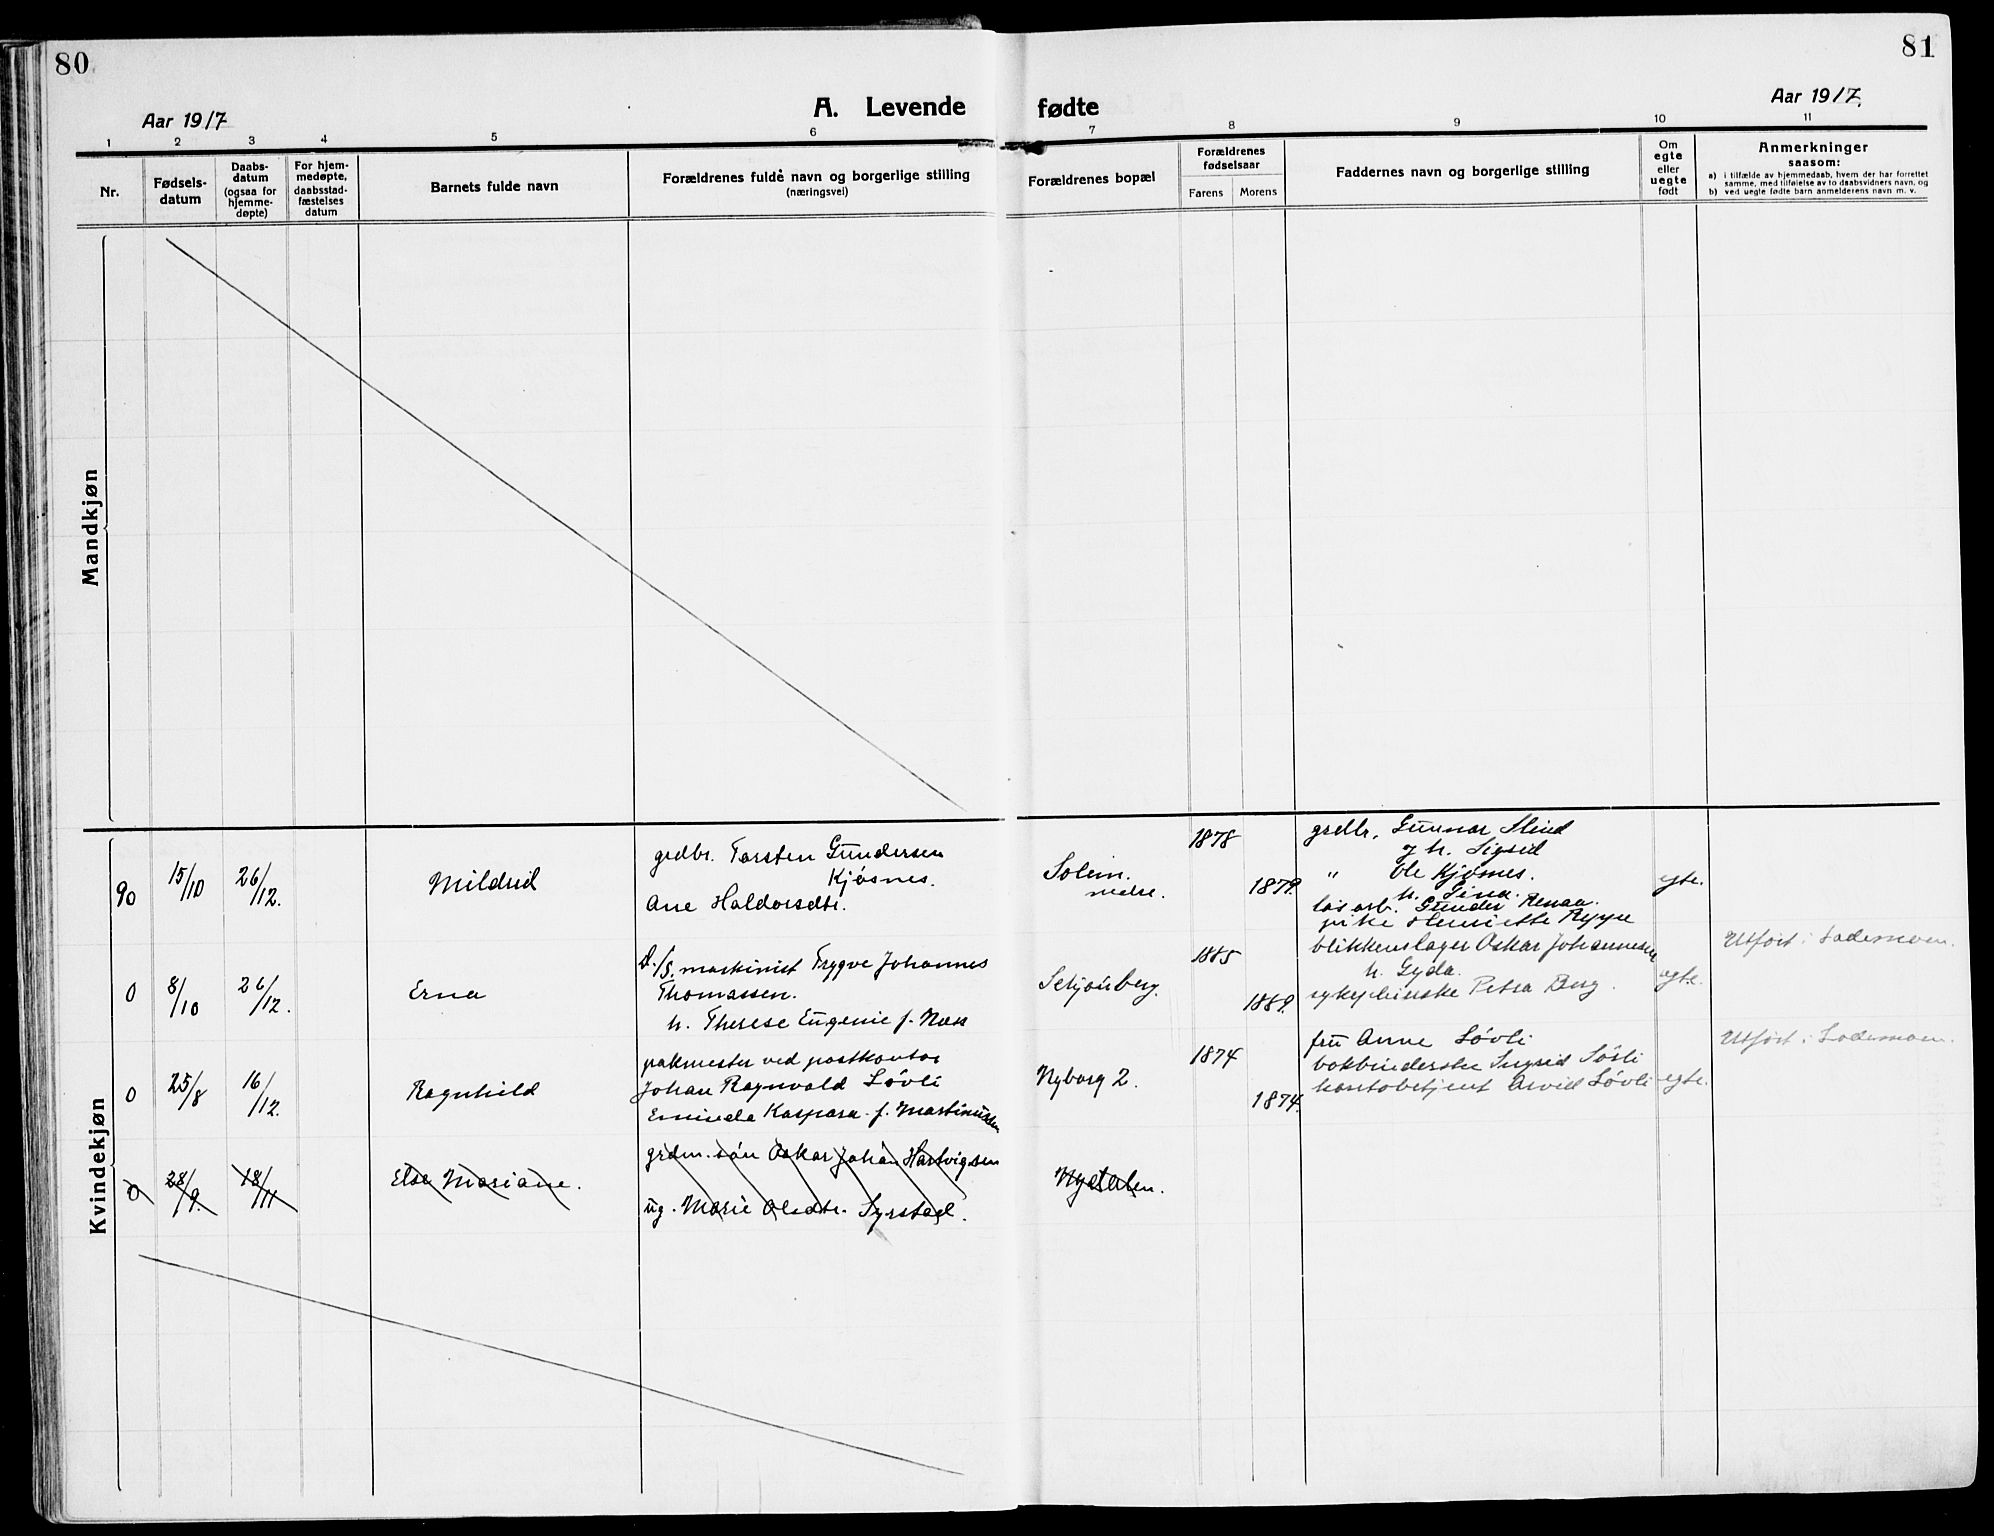 80
81
Aar 1917
A. Levende fødte
Aar 1917.
1 2 3 4 5 6 7 8 9 10 11
Nr.
Fødsels-
datum
Daabs-
datum
(ogsaa for
hjemme-
døpte)
For hjem-
medøpte,
daabsstad-
fæstelses
datum
Barnets fulde navn
Forældrenes fulde navn og borgerlige stilling
(næringsvei)
Forældrenes bopæl
Forældrenes
fødselsaar
Farens Morens
Faddernes navn og borgerlige stilling
Om
egte
eller
uegte
født
Anmerkninger
saasom:
a) i tilfælde av hjemmedaab, hvem der har forrettet
samme, med tilføielse av to daabsvidners navn, og
b) ved uegte fødte barn anmelderens navn m. v.
Mandkjøn
Kvindekjøn
90
15/10
26/12.
Mildrid
grdbr. Torsten Gundersen
Kjøsnes.
Ane Haldorsdtr.
Solem.
1878
1879.
grdbr. Gunnar Slind
h. Sigrid
" Ole Kjøsnes.
h. Gina.
løsarb. Gunder Renaa.
pike Henriette Reppe
egte.
0
8/10
26/12.
Erna
D./S. maskinist Trygve Johannes
Thomassen.
h. Therese Eugenie f. Næss
Schjønberg.
1885
1889.
blikkenslager Oskar Johannesen
h. Gyda.
sykepleierske Petra Berg.
egte.
Utført i Lademoen.
0
25/8
16/12.
Ragnhild
pakmester ved postkontor
Johan Ragnvald Løvli
Eminda Kaspara f. Martinussen
Nyborg 2.
1874
1874.
fru Anne Løvli
bokbinderske Ingrid Løvli
kontobetjent Arvid Løvli
egte.
Utført i Lademoen.
0
28/9.
18/11
Else Mariane.
grdm. søn Oskar Johan Hartvigsen
ug. Marie Olsdtr. Syrstad.
Nydalen.